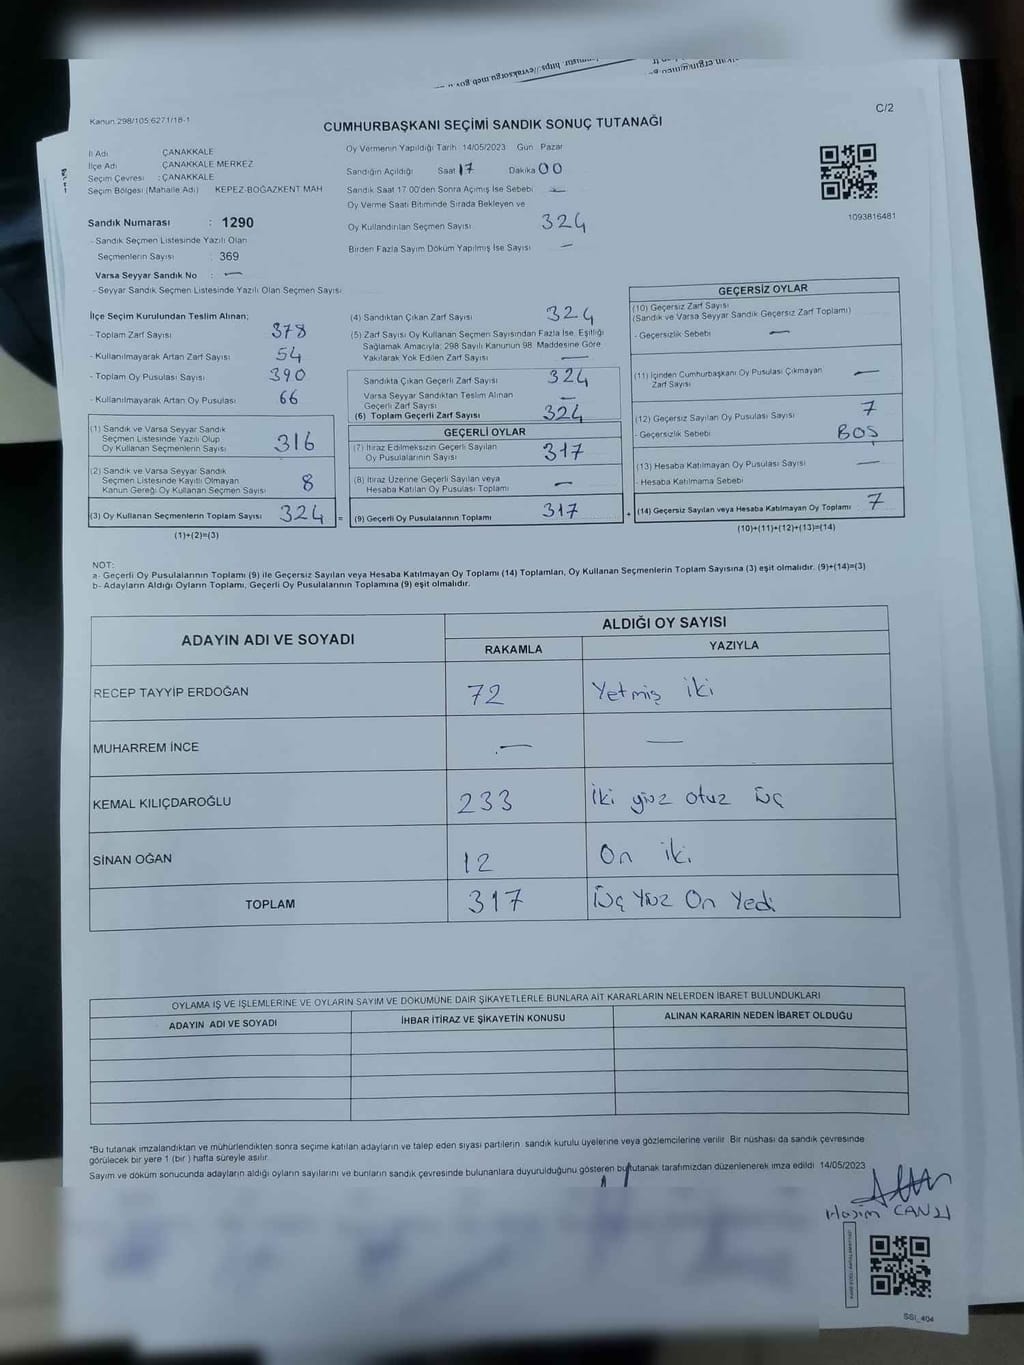 Kanun 298/105 6271/18-1
C/2
CUMHURBAŞKANI SEÇİMİ SANDIK SONUÇ TUTANAĞI
İl Adı ÇANAKKALE
İlçe Adı ÇANAKKALE MERKEZ
Seçim Çevresi : ÇANAKKALE
Seçim Bölgesi (Mahalle Adı) KEPEZ-BOĞAZKENT MAH
Sandık Numarası : 1290
- Sandık Seçmen Listesinde Yazılı Olan
Seçmenlerin Sayısı : 369
Varsa Seyyar Sandık No : —
- Seyyar Sandık Seçmen Listesinde Yazılı Olan Seçmen Sayısı
Oy Vermenin Yapıldığı Tarih 14/05/2023 Gün Pazar
Sandığın Açıldığı Saat 17 Dakika 00
Sandık Saat 17.00'den Sonra Açımış İse Sebebi —
Oy Verme Saati Bitiminde Sırada Bekleyen ve
Oy Kullandırılan Seçmen Sayısı 324
Birden Fazla Sayım Döküm Yapılmış İse Sayısı —
1093816481
İlçe Seçim Kurulundan Teslim Alınan;
- Toplam Zarf Sayısı 378
- Kullanılmayarak Artan Zarf Sayısı 54
- Toplam Oy Pusulası Sayısı 390
- Kullanılmayarak Artan Oy Pusulası 66
(1) Sandık ve Varsa Seyyar Sandık
Seçmen Listesinde Yazılı Olup
Oy Kullanan Seçmenlerin Sayısı 316
(2) Sandık ve Varsa Seyyar Sandık
Seçmen Listesinde Kayıtlı Olmayan
Kanun Gereği Oy Kullanan Seçmen Sayısı 8
(3) Oy Kullanan Seçmenlerin Toplam Sayısı 324 =
(1)+(2)=(3)
(4) Sandıktan Çıkan Zarf Sayısı 324
(5) Zarf Sayısı Oy Kullanan Seçmen Sayısından Fazla İse, Eşitliği
Sağlamak Amacıyla; 298 Sayılı Kanunun 98. Maddesine Göre
Yakılarak Yok Edilen Zarf Sayısı —
Sandıkta Çıkan Geçerli Zarf Sayısı 324
Varsa Seyyar Sandıktan Teslim Alınan
Geçerli Zarf Sayısı —
(6) Toplam Geçerli Zarf Sayısı 324
GEÇERLİ OYLAR
(7) İtiraz Edilmeksizin Geçerli Sayılan
Oy Pusulalarının Sayısı 317
(8) İtiraz Üzerine Geçerli Sayılan veya
Hesaba Katılan Oy Pusulası Toplamı —
(9) Geçerli Oy Pusulalarının Toplamı 317 +
GEÇERSİZ OYLAR
(10) Geçersiz Zarf Sayısı
(Sandık ve Varsa Seyyar Sandık Geçersiz Zarf Toplamı)
- Geçersizlik Sebebi —
(11) İçinden Cumhurbaşkanı Oy Pusulası Çıkmayan
Zarf Sayısı —
(12) Geçersiz Sayılan Oy Pusulası Sayısı 7
- Geçersizlik Sebebi BOŞ
(13) Hesaba Katılmayan Oy Pusulası Sayısı —
- Hesaba Katılmama Sebebi
(14) Geçersiz Sayılan veya Hesaba Katılmayan Oy Toplamı 7
(10)+(11)+(12)+(13)=(14)
NOT:
a- Geçerli Oy Pusulalarının Toplamı (9) ile Geçersiz Sayılan veya Hesaba Katılmayan Oy Toplamı (14) Toplamları, Oy Kullanan Seçmenlerin Toplam Sayısına (3) eşit olmalıdır. (9)+(14)=(3)
b- Adayların Aldığı Oyların Toplamı, Geçerli Oy Pusulalarının Toplamına (9) eşit olmalıdır.
ADAYIN ADI VE SOYADI
ALDIĞI OY SAYISI
RAKAMLA YAZIYLA
RECEP TAYYİP ERDOĞAN 72 Yetmiş iki
MUHARREM İNCE — —
KEMAL KILIÇDAROĞLU 233 iki yüz otuz üç
SİNAN OĞAN 12 On iki
TOPLAM 317 Üç Yüz On Yedi
OYLAMA İŞ VE İŞLEMLERİNE VE OYLARIN SAYIM VE DÖKÜMÜNE DAİR ŞİKAYETLERLE BUNLARA AİT KARARLARIN NELERDEN İBARET BULUNDUKLARI
ADAYIN ADI VE SOYADI İHBAR İTİRAZ VE ŞİKAYETİN KONUSU ALINAN KARARIN NEDEN İBARET OLDUĞU
*Bu tutanak imzalandıktan ve mühürlendikten sonra seçime katılan adayların ve talep eden siyasi partilerin sandık kurulu üyelerine veya gözlemcilerine verilir. Bir nüshası da sandık çevresinde
görülecek bir yere 1 (bir) hafta süreyle asılır.
Sayım ve döküm sonucunda adayların aldığı oyların sayılarını ve bunların sandık çevresinde bulunanlara duyurulduğunu gösteren bu tutanak tarafımızdan düzenlenerek imza edildi 14/05/2023
SSI_404